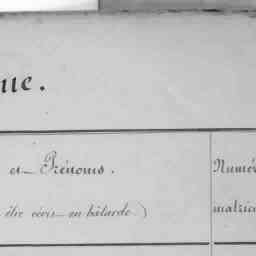 ue.
et Prénoms.
être écris en bâtarde)
Numéro
matric